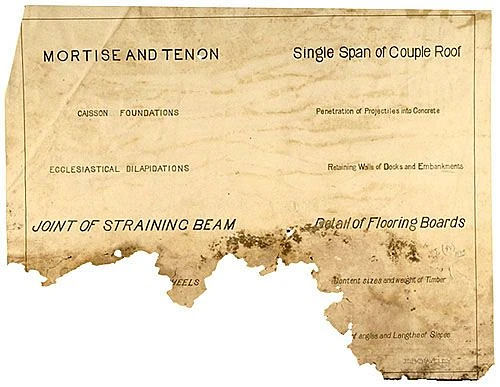 MORTISE AND TENON
Single Span of Couple Roof
CAISSON FOUNDATIONS
Penetration of Projectiles into Concrete
ECCLESIASTICAL DILAPIDATIONS
Retaining Walls of Docks and Embankments
JOINT OF STRAINING BEAM
Detail of Flooring Boards
HEELS
Content sizes and weight of Timber
angles and Lengths of Slopes